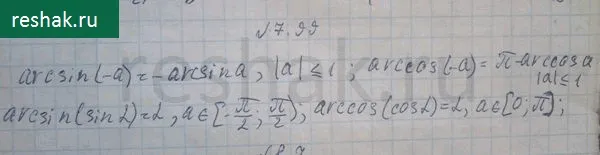 reshak.ru
№7.99
arcsin(-a)=-arcsin a, |a|≤1; arccos(-a)=π-arccos a
|a|≤1
arcsin(sin α)=α, a∈[-π/2; π/2); arccos(cos α)=α, a∈[0;π];